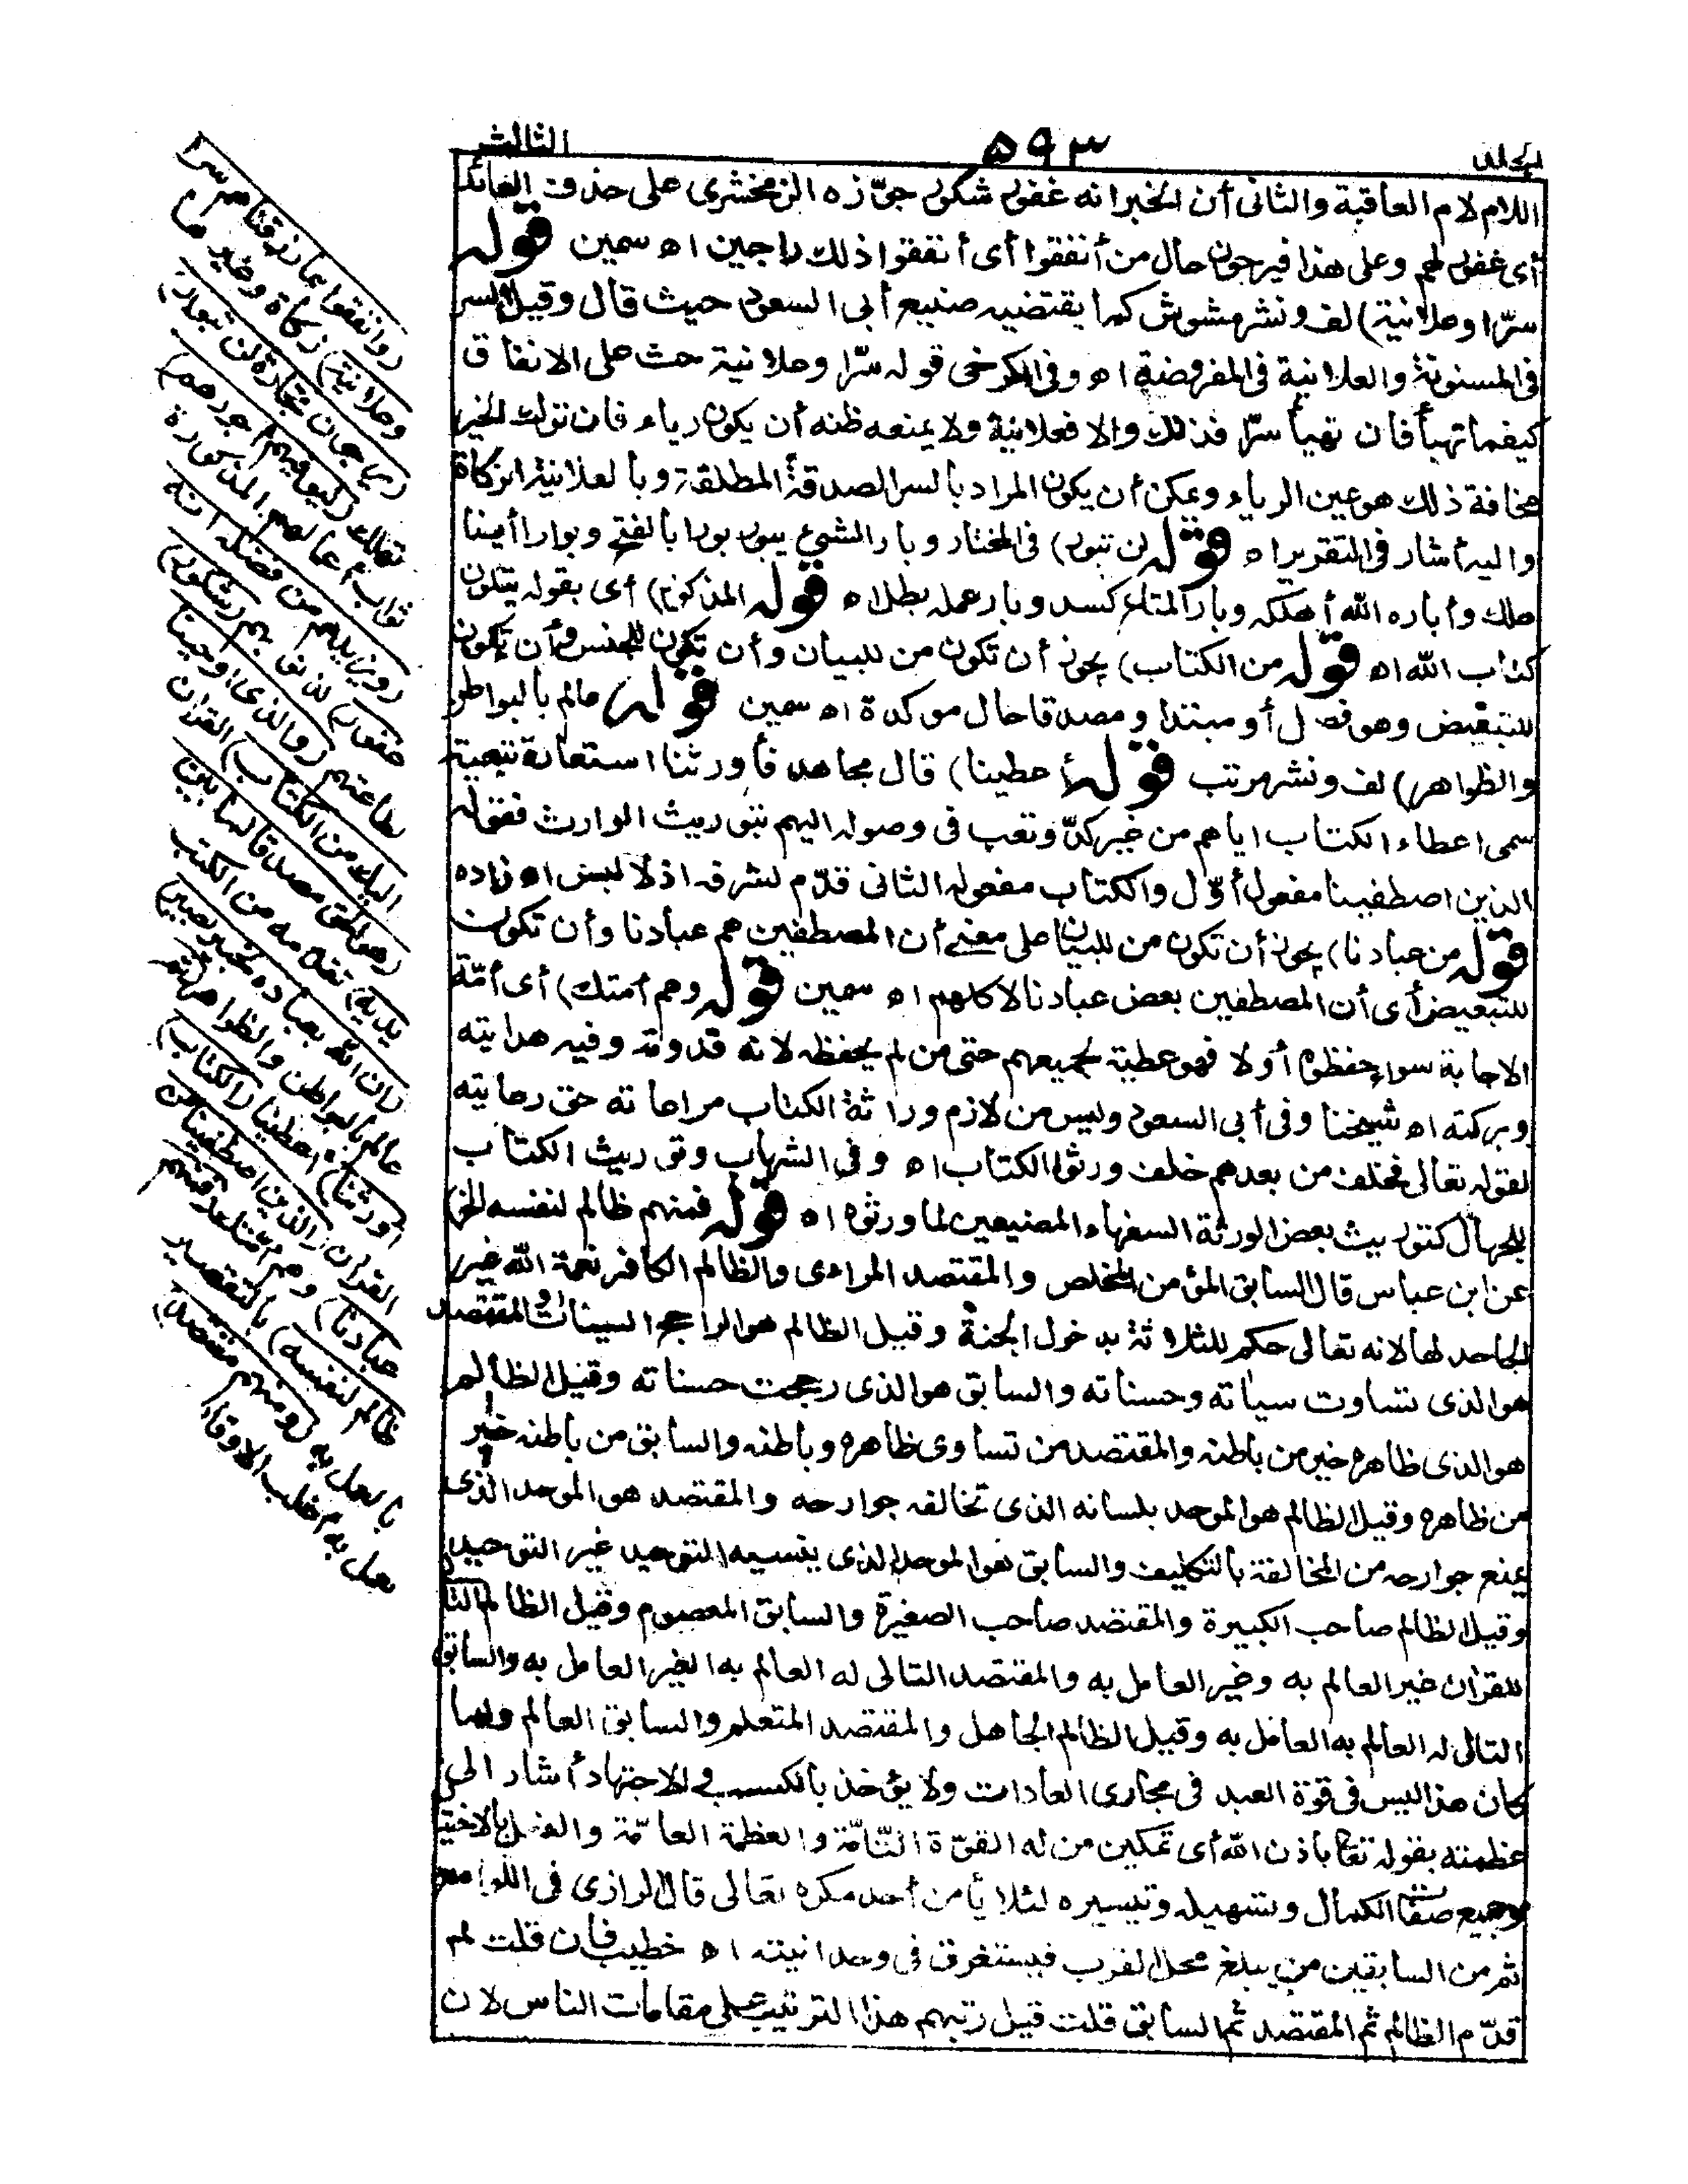 المجلد
٥٩٣
الثالث
اللام لام العاقبة والثانى أن الخبر انه غفور شكور جوّزه الزمخشرى على حذف العائد
أى غفور لهم وعلى هذا فيرجون حال من أنفقوا أى أنفقوا ذلك راجين اه سمين قوله
سرّا وعلانية) لف ونشر مشوش كما يقتضيه صنيع أبى السعود حيث قال وقيل السر
فى المسنونة والعلانية فى المفروضة اه وفى الكرخى قوله سرّا وعلانية حث على الانفاق
كيفما تهيأ فان تهيأ سرّا فذلك والا فعلانية ولا يمنعه ظنه أن يكون رياء فان ترك الخير
مخافة ذلك هو عين الرياء ويمكن أن يكون المراد بالسر الصدقة المطلقة وبالعلانية الزكاة
واليه أشار فى التقرير اه قوله لن تبور) فى المختار وبار الشىء يبور بورا بالفتح وبوارا أيضا
هلك وأباره الله أهلكه وبار المتاع كسد وبار عمله بطل اه قوله المذكور) أى بقوله يتلون
كتاب الله اه قوله من الكتاب) يجوز أن تكون من للبيان وأن تكون للجنس وأن تكون
للتبعيض وهو فصل أو مبتدا ومصدقا حال موكدة اه سمين قوله عالم بالبواطن
والظواهر) لف ونشر مرتب قوله أعطينا) قال مجاهد فأورثنا استعارة تبعية
سمى اعطاء الكتاب اياهم من غير كدّ وتعب فى وصوله اليهم بتوريث الوارث فقوله
الذين اصطفينا مفعول أوّل والكتاب مفعوله الثانى قدّم لشرفه اذ لا لبس اه زاده
قوله من عبادنا) يجوز أن تكون من للبيان على معنى أن المصطفين هم عبادنا وأن تكون
للتبعيض أى أن المصطفين بعض عبادنا لا كلهم اه سمين قوله وهم أمتك) أى أمّة
الاجابة سواء حفظوه أولا فهو عطية لجميعهم حتى من لم يحفظه لانه قدوته وفيه هدايته
وبركته اه شيخنا وفى أبى السعود وليس من لازم وراثة الكتاب مراعاته حق رعايته
لقوله تعالى فخلف من بعدهم خلف ورثوا الكتاب اه وفى الشهاب وتوريث الكتاب
للجهال كتوريث بعض الورثة السفهاء المضيعين لما ورثوه اه قوله فمنهم ظالم لنفسه الخ)
عن ابن عباس قال السابق المؤمن المخلص والمقتصد المراءى والظالم الكافر نعمة الله غير
الجاحد لها لانه تعالى حكم للثلاثة بدخول الجنة وقيل الظالم هو الراجح السيئات والمقتصد
هو الذى تساوت سياته وحسناته والسابق هو الذى رجحت حسناته وقيل الظالم
هو الذى ظاهره خير من باطنه والمقتصد من تساوى ظاهره وباطنه والسابق من باطنه خير
من ظاهره وقيل الظالم هو الموحد بلسانه الذى تخالفه جوارحه والمقتصد هو الموحد الذى
يمنع جوارحه من المخالفة بالتكليف والسابق هو الموحد الذى ينسيه التوحيد غير التوحيد
وقيل الظالم صاحب الكبيرة والمقتصد صاحب الصغيرة والسابق المعصوم وقيل الظالم التالى
للقرآن غير العالم به وغير العامل به والمقتصد التالى له العالم به الغير العامل به والسابق
التالى له العالم به العامل به وقيل الظالم الجاهل والمقتصد المتعلم والسابق العالم ولما
كان هذا ليس فى قوّة العبد فى مجارى العادات ولا يؤخذ بالكسب والاجتهاد أشار الى
عظمته بقوله تعا باذن الله أى تمكين من له القوّة التامّة والعظمة العامّة والفعل بالاختيا
وجميع صفا الكمال وتسهيله وتيسيره لئلا يأمن أحد مكره تعالى قال الرازى فى اللوامع
ثم من السابقين من يبلغ محل القرب فيستغرق فى وحدانيته اه خطيب فان قلت لم
قدّم الظالم ثم المقتصد ثم السابق قلت قيل رتبهم هذا الترتيب على مقامات الناس لان
(وانفقوا مما رزقناهم سرا
وعلانية) زكاة وغيرها
(يرجون تجارة لن تبور)
تهلك (ليوفيهم أجورهم)
ثواب أعمالهم المذكورة
(ويزيدهم من فضله انه
غفور) لذنوبهم (شكور)
لطاعتهم (والذى أوحينا
اليك من الكتاب) القرآن
(هو الحق مصدقا لما بين
يديه) تقدمه من الكتب
(ان الله بعباده لخبير بصير)
عالم بالبواطن والظواهر (ثم
أورثنا) أعطينا (الكتاب)
القرآن (الذين اصطفينا من
عبادنا) وهم أمتك (فمنهم
ظالم لنفسه) بالتقصير
بالعمل به (ومنهم مقتصد)
يعمل به أغلب الاوقات